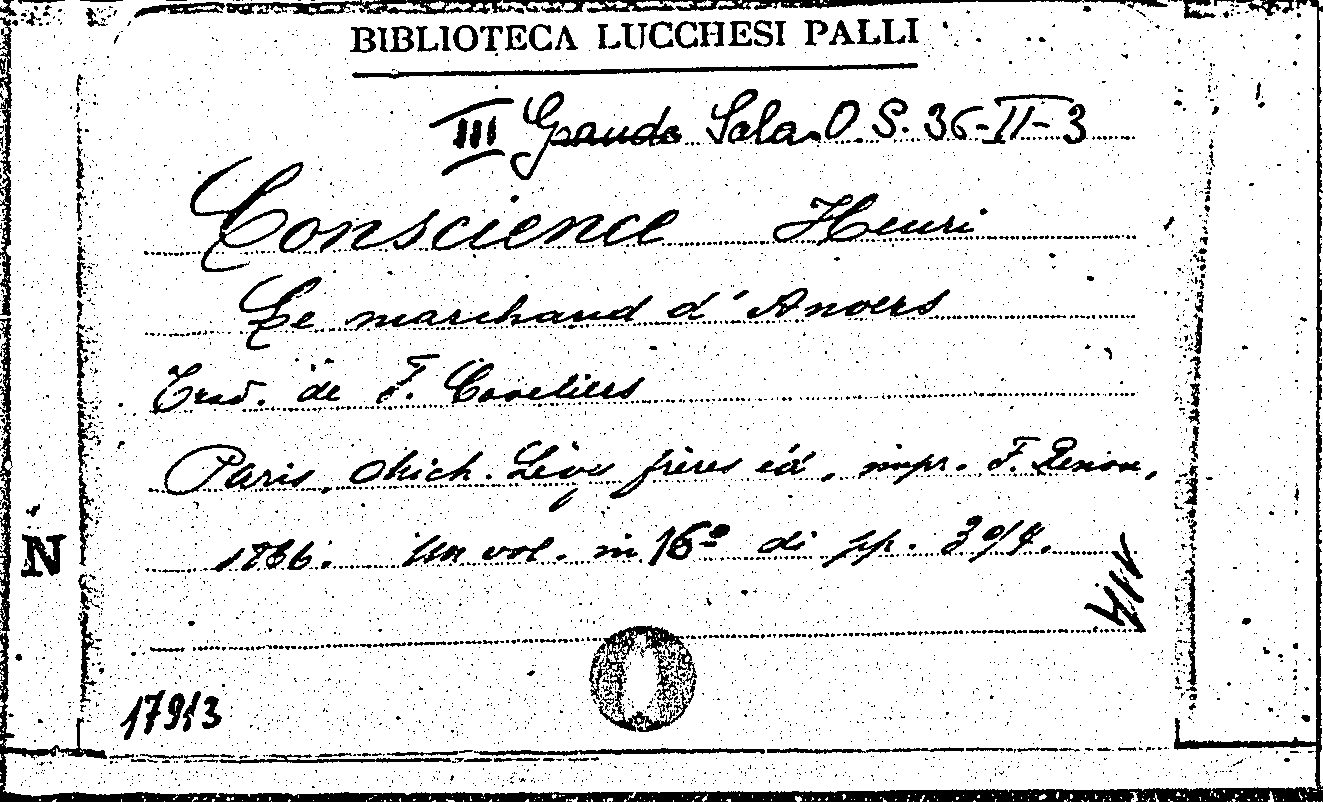 BIBLIOTECA LUCCHESI PALLI
III Grande Sala O. S. 36-II-3
Conscience Henri
Le marchand d'Anvers
Trad. de F. Coveliers
Paris, Mich. Lévy frères éd., impr. F. Renou,
1866. Un vol. in 16º di pp. 304.
N
17913